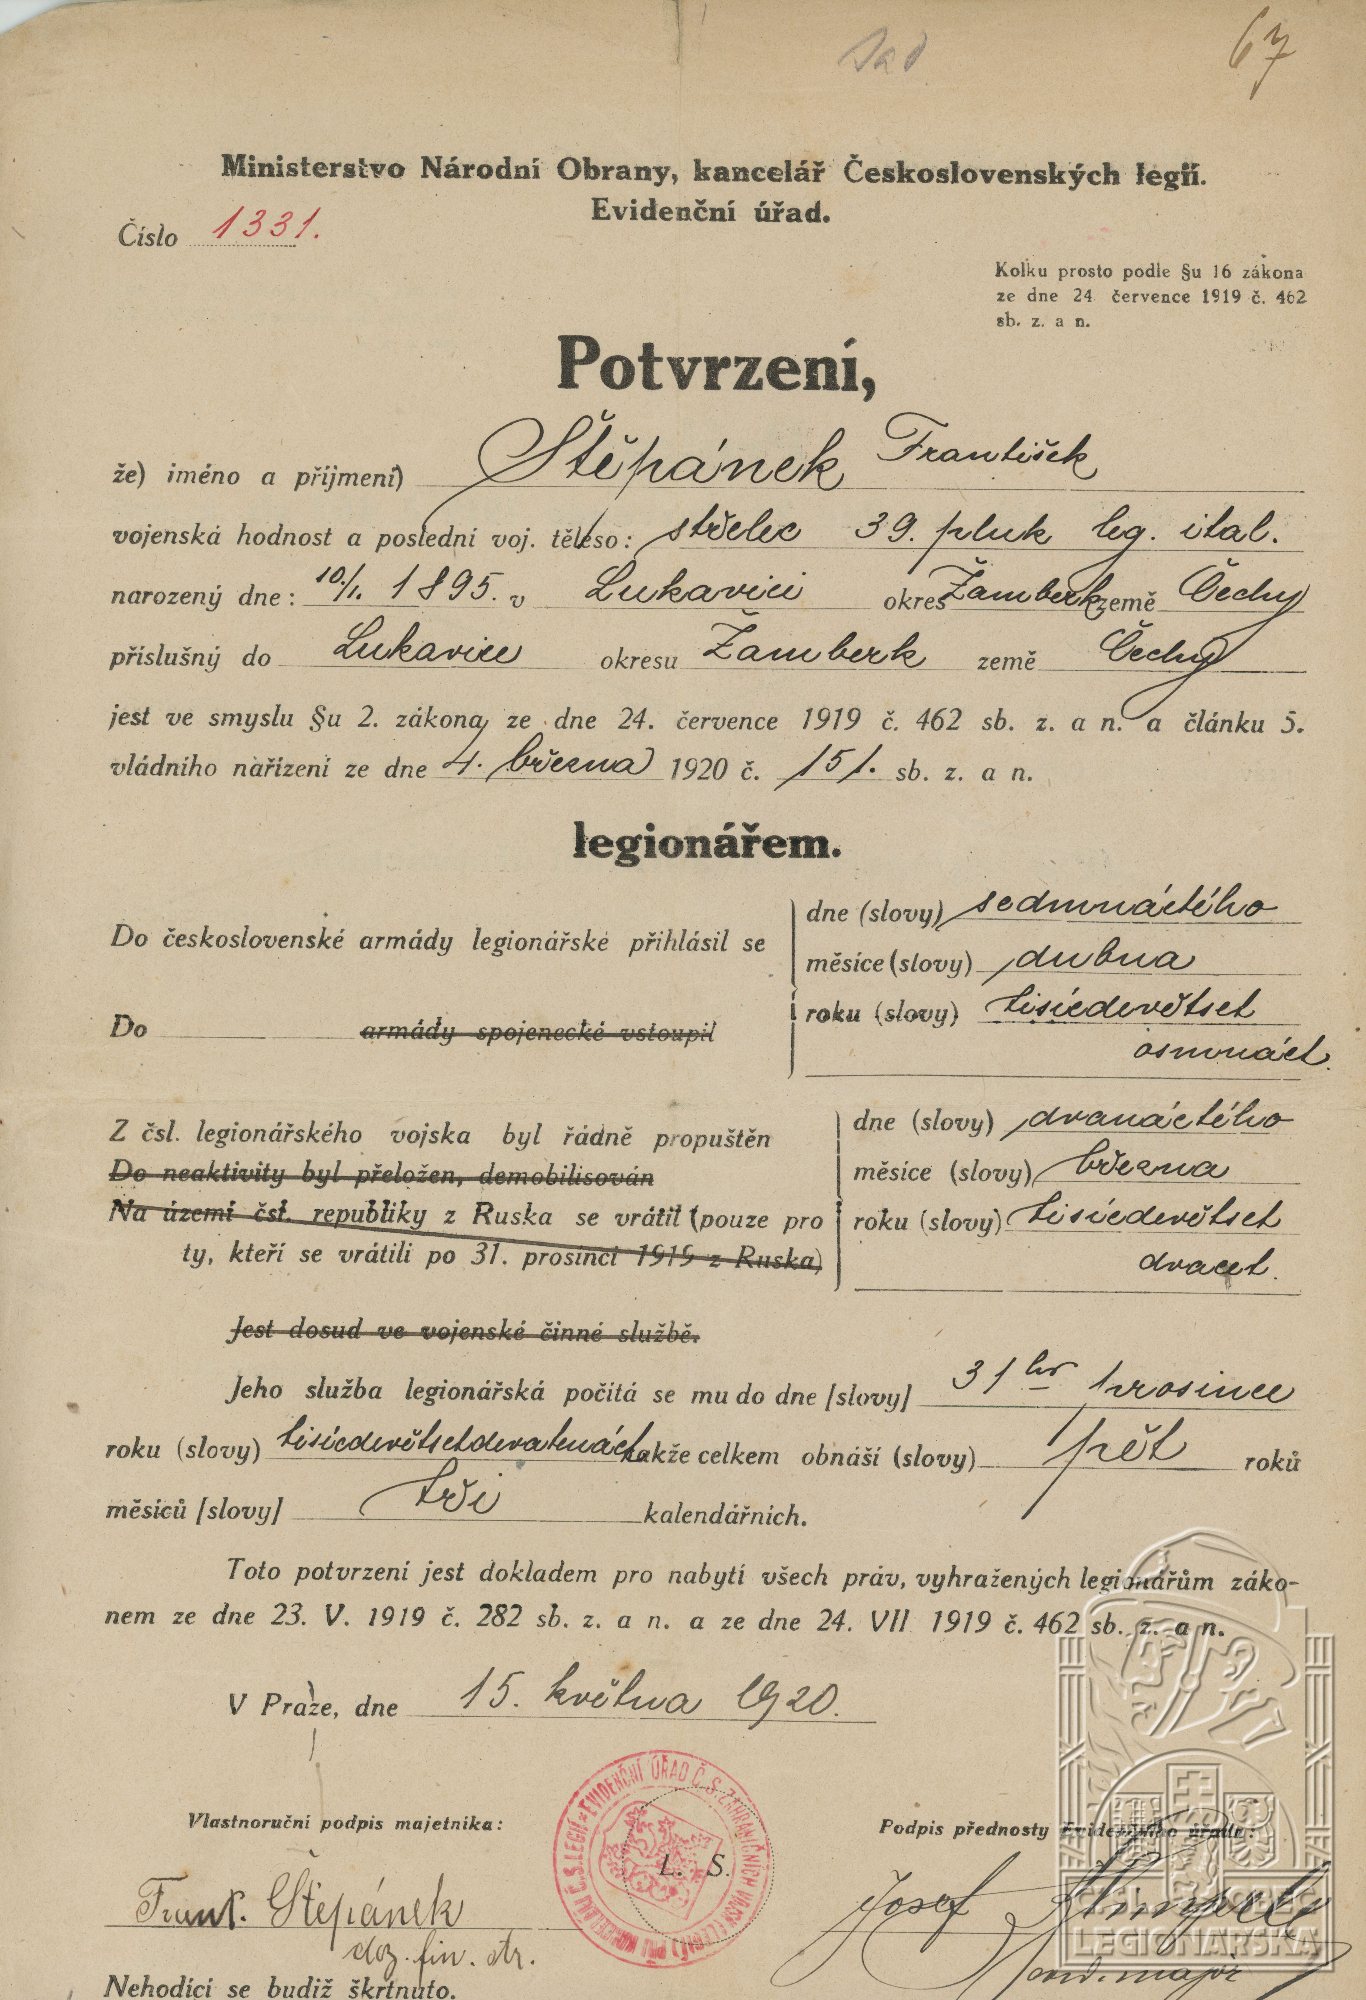 67
Ministerstvo Národní Obrany, kancelář Československých legií.
Evidenční úřad.
Číslo 1331.
Kolku prosto podle §u 16 zákona
ze dne 24 července 1919 č. 462
sb. z. a n.
Potvrzení,
že) iméno a příjmení) Štěpánek František
vojenská hodnost a poslední voj. těleso: střelec 39. pluk leg. ital.
narozený dne: 10./1. 1895. v Lukavici okres Žamberk země Čechy
příslušný do Lukavice okresu Žamberk země Čechy
jest ve smyslu §u 2. zákona ze dne 24. července 1919 č. 462 sb. z. a n. a článku 5.
vládního nařízení ze dne 4. března 1920 č. 151. sb. z. a n.
legionářem.
Do československé armády legionářské přihlásil se
dne (slovy) sedmnáctého
měsíce (slovy) dubna
Do armády spojenecké vstoupil
roku (slovy) tisícdevětset
osmnáct.
Z čsl. legionářského vojska byl řádně propuštěn
Do neaktivity byl přeložen, demobilisován
Na území čsl. republiky z Ruska se vrátil (pouze pro
ty, kteří se vrátili po 31. prosinci 1919 z Ruska)
dne (slovy) dvanáctého
měsíce (slovy) března
roku (slovy) tisícdevětset
dvacet.
Jest dosud ve vojenské činné službě.
Jeho služba legionářská počítá se mu do dne [slovy] 31ho prosince
roku (slovy) tisícdevětsetdevatenáct takže celkem obnáší (slovy) pět roků
měsíců [slovy] tři kalendářních.
Toto potvrzení jest dokladem pro nabytí všech práv, vyhražených legionářům záko-
nem ze dne 23. V. 1919 č. 282 sb. z. a n. a ze dne 24. VII 1919 č. 462 sb. z. a n.
V Praze, dne 15. května 1920.
Vlastnoruční podpis majetníka:
Podpis přednosty Evidenčního úřadu:
EVIDENČNÍ ÚŘAD Č. S. ZAHRANIČNÍCH VOJSK
L. S.
Frant. Štěpánek
doz. fin. str.
Josef
major
Nehodící se budiž škrtnuto.
ČSL. OBEC
LEGIONÁŘSKÁ